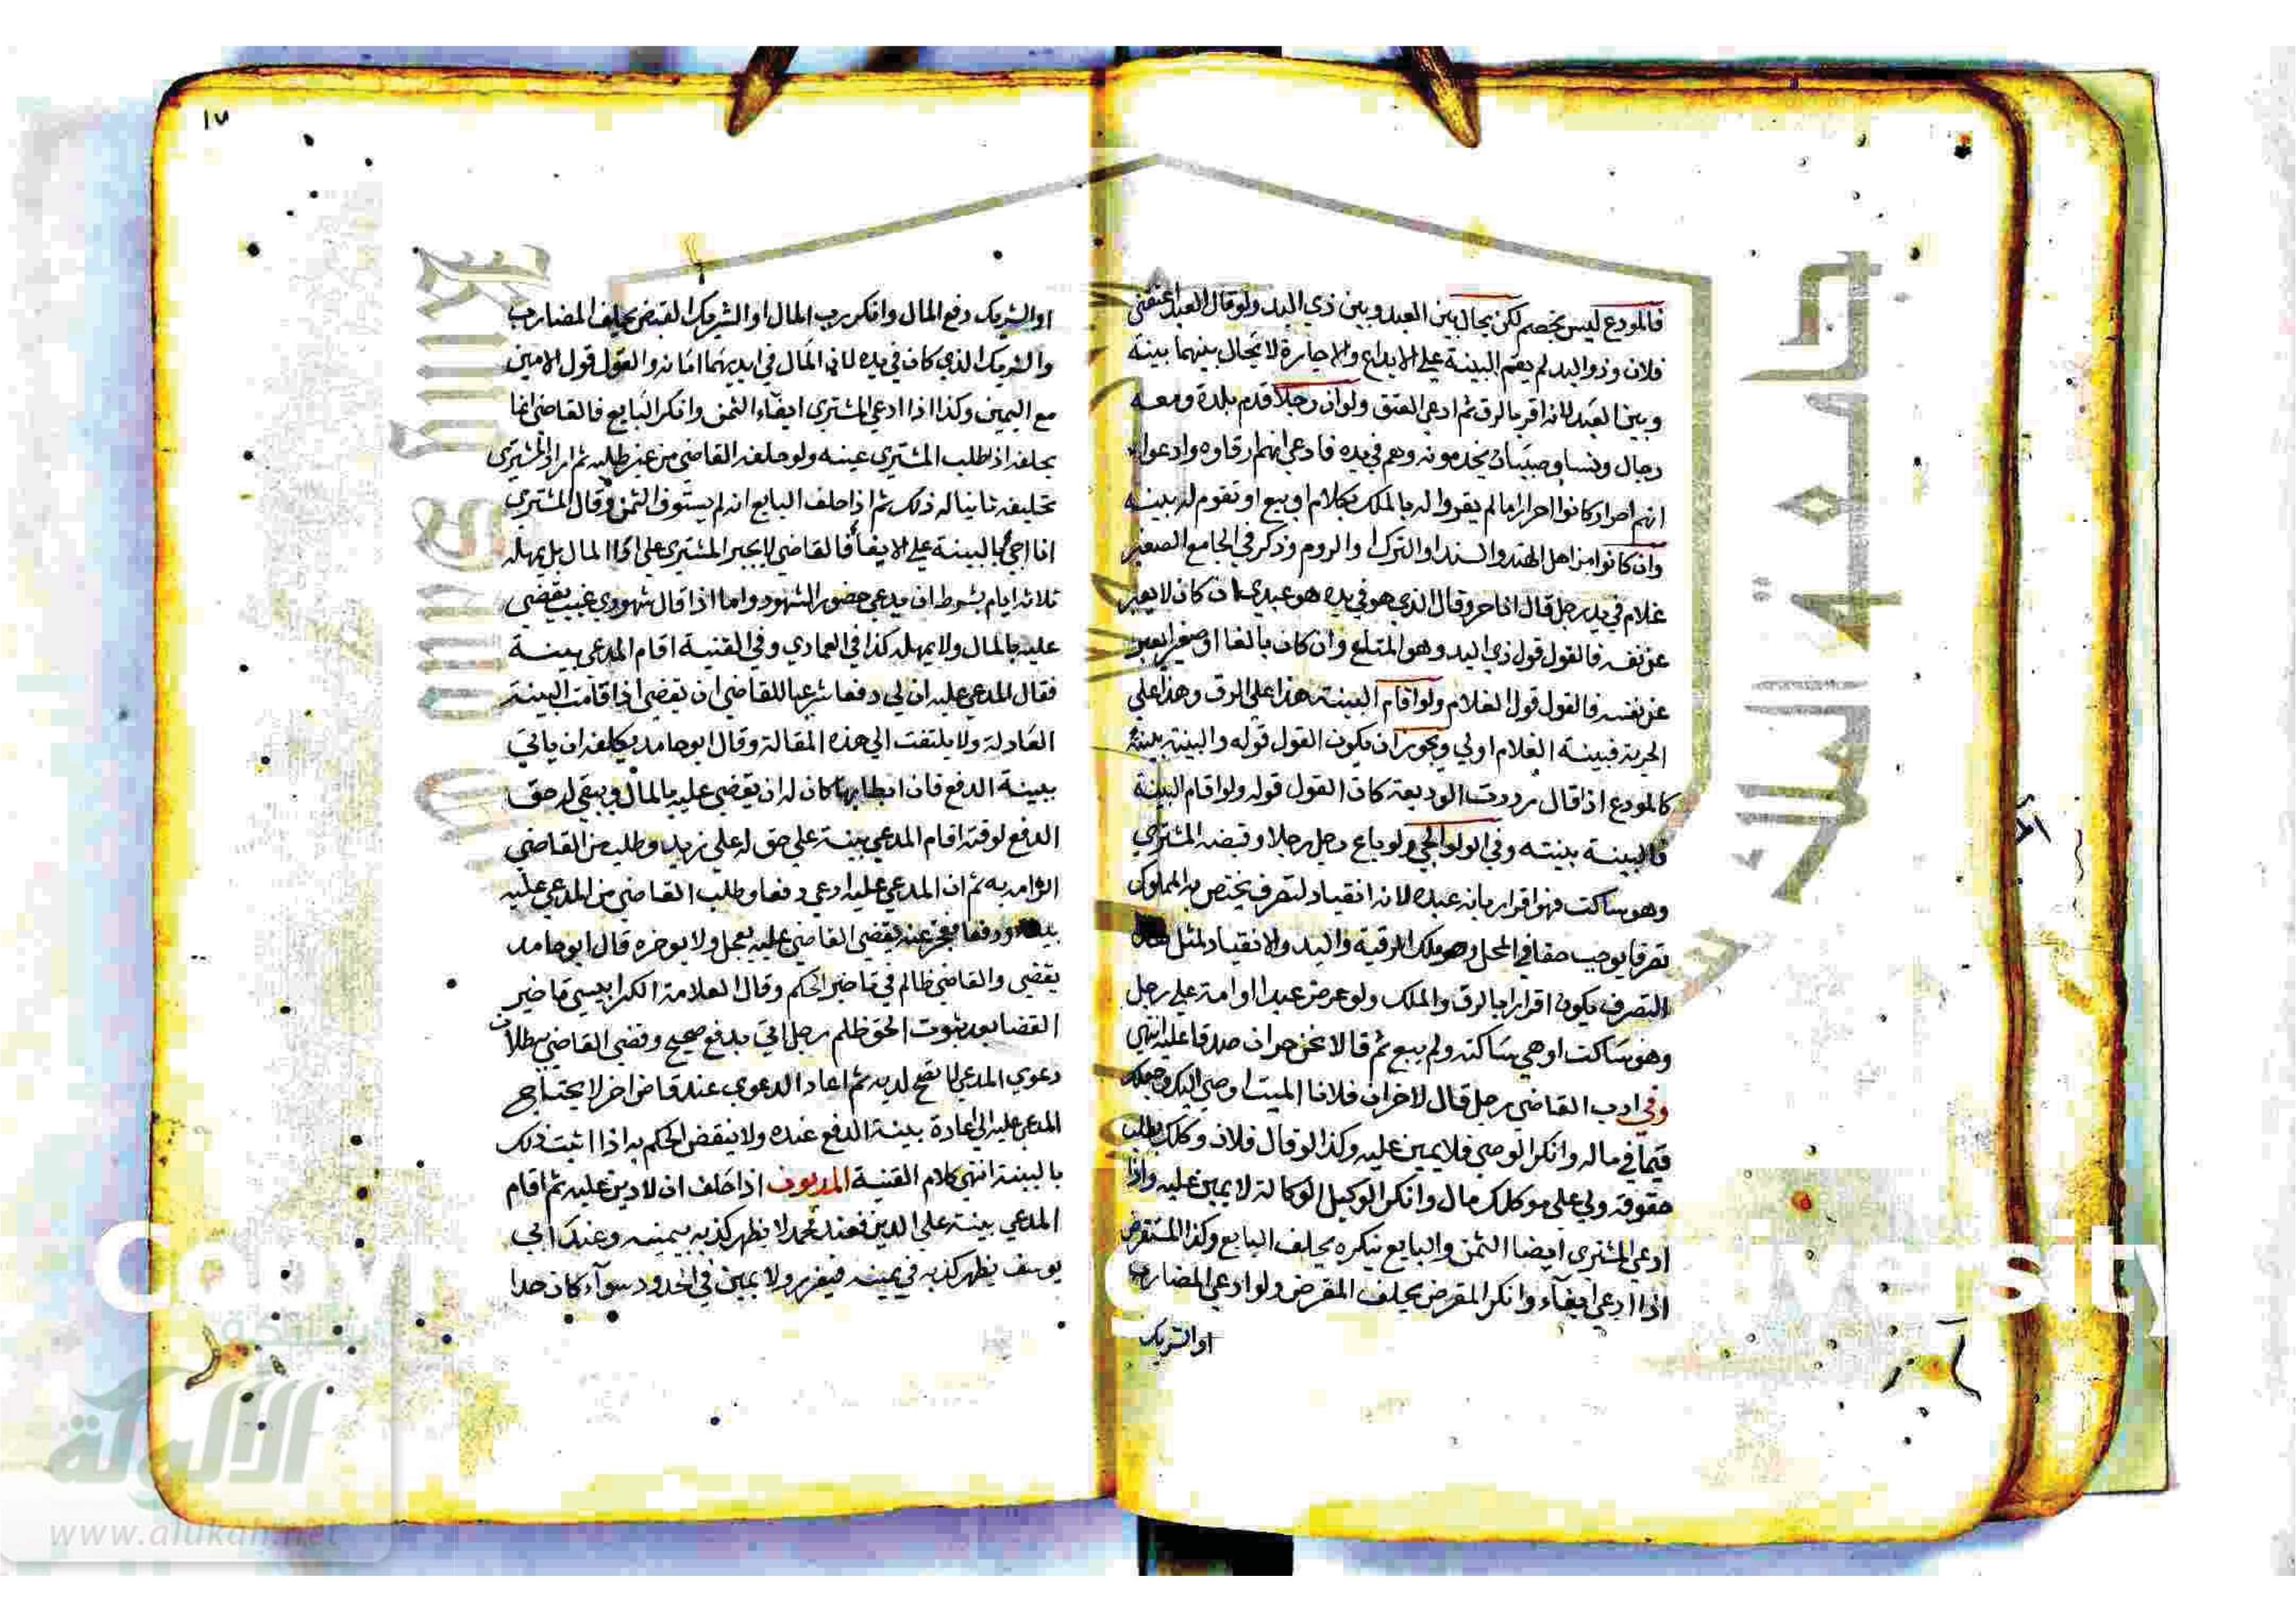 فالمودع ليس بخصم لكن يحال بين العبد وبين ذي اليد ولو قال العبد اعتقني
فلان وذو اليد لم يقم البينة على الايداع والاجارة لا تحال بينهما بينة
وبين العبد لانه اقر بالرق ثم ادعى العتق ولو ان رجلا قدم بلدة ومعه
رجال ونسا وصبيان يخدمونه وهم في يده فادعى انهم ارقاوه وادعوا
انهم احرار كانوا احرارا ما لم يقروا له بالملك بكلام او بيع او تقوم له بينة
وان كانوا من اهل الهند والسند او الترك او الروم وذكر في الجامع الصغير
غلام في يد رجل قال انا حر وقال الذي هو في يده هو عبدي ان كان لا يعبر
عن نفسه فالقول قول ذي اليد وهو المتلع وان كان بالغا او صغيرا يعبر
عن نفسه فالقول قول الغلام ولو اقام البينة هذا على الرق وهذا على
الحرية فبينة الغلام اولى ويجوز ان يكون القول قوله والبينة بينته
كالمودع اذا قال رددت الوديعة كان القول قوله ولو اقام البينة
فالبينة بينته وفي الولوالجي ولو باع رجل رجلا وقبضه المشتري
وهو ساكت فهو اقرار بانه عبده لانه انقياد لتصرف يختص به المملوك
تصرفا يوجب حقا في المحل وهو ملك الرقبة واليد والانقياد لمثل هذا
التصرف يكون اقرارا بالرق والملك ولو عرض عبدا او امة على رجل
وهو ساكت او هي ساكتة ولم يبع ثم قالا نحن حران صدقا عليه انتهى
وفي ادب القاضي رجل قال لاخر ان فلانا الميت اوصى اليك وجعلك
قيما في ماله وانكر الوصي فلا يمين عليه وكذا لو قال فلان وكلك بطلب
حقوقه ولي على موكلك مال وانكر الوكيل الوكالة لا يمين عليه واذا
ادعى المشتري ايضا الثمن والبايع ينكره يحلف البايع وكذا المستقرض
اذا ادعى ايفاء وانكر المقرض يحلف المقرض ولو ادعى المضارب
او الشريك
١٧
او الشريك دفع المال وانكر رب المال او الشريك القبض يحلف المضارب
والشريك الذي كان في يده لان المال في ايديهما امانة والقول قول الامين
مع اليمين وكذا اذا ادعى المشتري ايفاء الثمن وانكر البايع فالقاضي انما
يحلفه اذا طلب المشتري يمينه ولو حلفه القاضي من غير طلبه ثم اراد المشتري
تحليفه ثانيا له ذلك ثم اذا حلف البايع انه لم يستوف الثمن وقال المشتري
انا اجئ بالبينة على الايفا فالقاضي لا يجبر المشتري على اداا المال بل يمهله
ثلاثة ايام بشرط ان يدعي حضور الشهود واما اذا قال شهودي غيب يقضي
عليه بالمال ولا يمهله كذا في العمادي وفي القنية اقام المدعي بينة
فقال المدعى عليه ان لي دفعا شرعيا للقاضي ان يقضي اذا قامت البينة
العادلة ولا يلتفت الى هذه المقالة وقال ابو حامد يكلفه ان ياتي
ببينة الدفع فان ابطا بها كان له ان يقضي عليه بالمال ويبقى له حق
الدفع لوقته اقام المدعي بينة على حق له على زيد وطلب من القاضي
الزامه به ثم ان المدعى عليه ادعى دفعا وطلب القاضي من المدعى عليه
ودفعا فعجز عنه يقضي القاضي عليه بعجل ولا يوخره قال ابو حامد
يقضي والقاضي ظالم في تاخير الحكم وقال العلامة الكرابيسي تاخير
القضا بعد ثبوت الحق ظلم رجل اتى بدفع صحيح وقضى القاضي ببطلان
دعوى المدعي لما تضح لديه ثم اعاد الدعوى عند قاض اخر لا يحتاج
المدعى عليه الى اعادة بينة الدفع عنده ولا ينقض الحكم به اذا اثبت ذلك
بالبينة انتهى كلام القنية المديون اذا حلف ان لا دين عليه ثم اقام
المدعي بينة على الدين فعند محمد لا يظهر كذبه بيمينه وعند ابي
يوسف يظهر كذبه في يمينه فيعزر ولا يمين في الحدود سوآء كان حدا
الألوكة
www.alukah.net